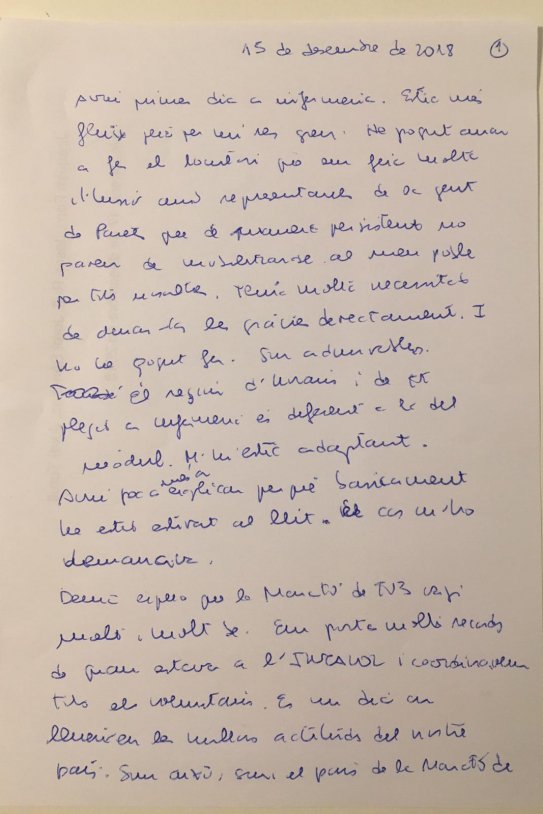 15 de desembre de 2018 1
Avui primer dia a infermeria. Estic més
fluix però per mi res greu. He pogut anar
a fer el locutori que em feia molta
il·lusió amb representants de la gent
de Parets que de manera persistent no
paren de mobilitzar-se al meu poble
per tots nosaltres. Tenia molta necessitat
de donar-los les gràcies directament. I
ho he pogut fer. Son admirables.
el regim d'horaris i de
plegat a infermeria és diferent a la del
mòdul. M'hi estic adaptant.
Avui poc a explicar perquè basicament
he estat estirat al llit. El cos m'ho
demanava.
Demà espero que la Marató de TV3 vagi
molt i molt bé. Em porta molts records
de quan estava a l'INCAVOL i coordinavem
tots els voluntaris. Es un dia on
llueixen les millors actituds del nostre
país. Som això, som el país de la Marató de